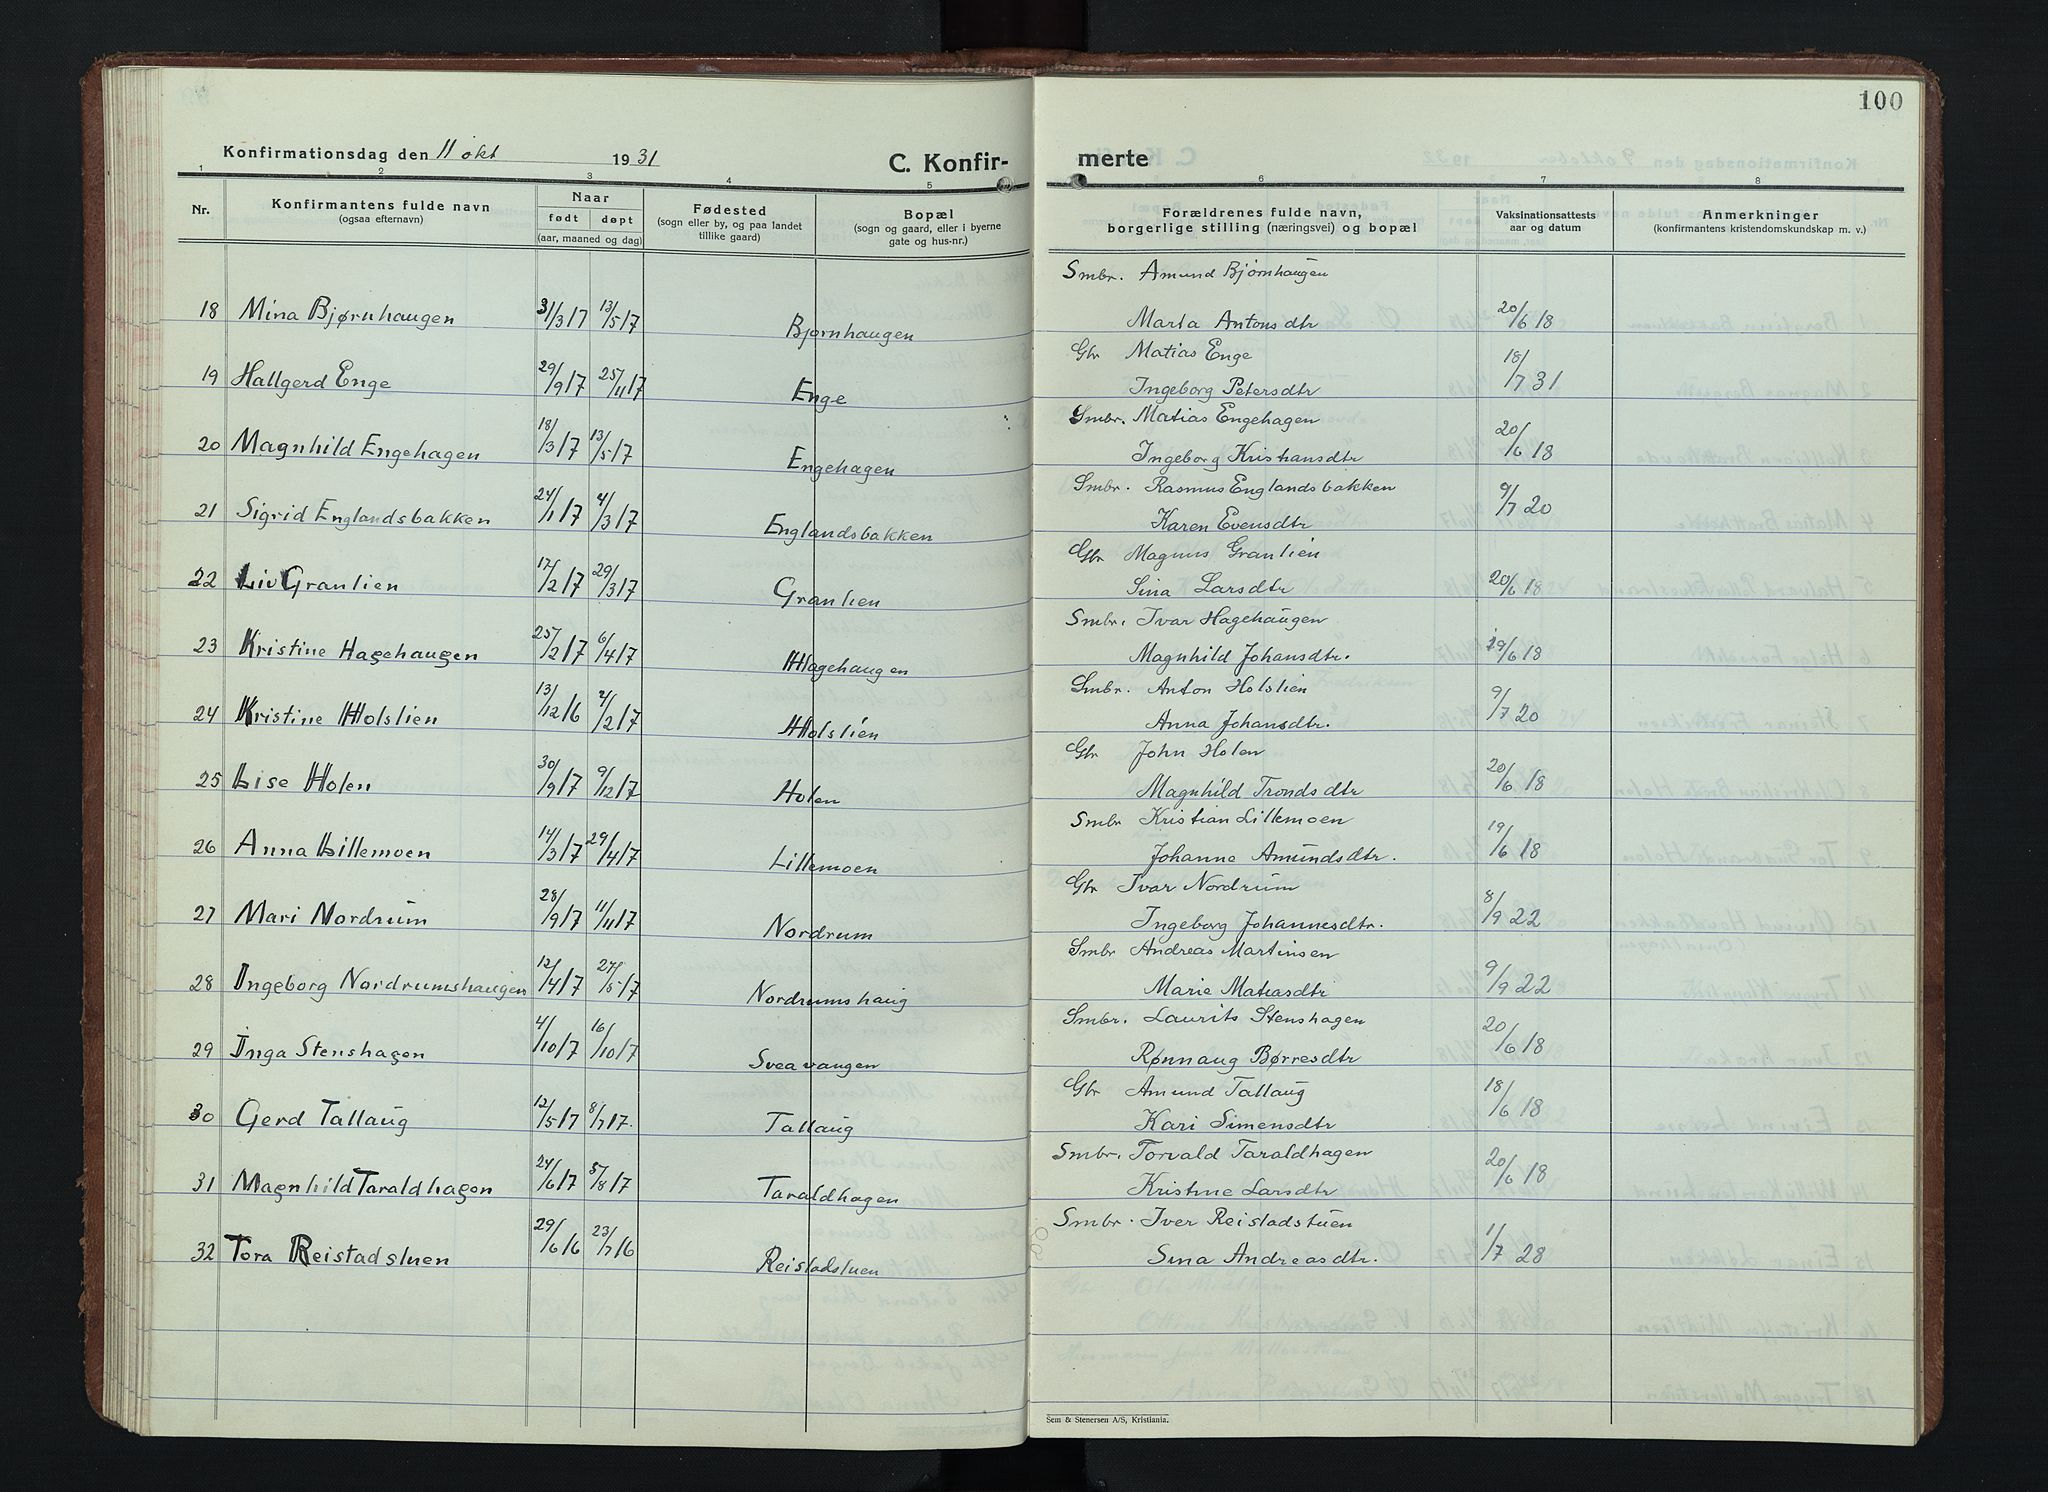 100
Konfirmationsdag den 11 okt 1931
C. Konfir-
merte
1 2 3 4 5 6 7 8
Nr.
Konfirmantens fulde navn
(ogsaa efternavn)
Naar
født døpt
(aar, maaned og dag)
Fødested
(sogn eller by, og paa landet
tillike gaard)
Bopæl
(sogn og gaard, eller i byerne
gate og hus-nr.)
Forældrenes fulde navn,
borgerlige stilling (næringsvei) og bopæl
Vaksinationsattests
aar og datum
Anmerkninger
(konfirmantens kristendomskundskap m. v.)
Smbr. Amund Bjørnhaugen
18 Mina Bjørnhaugen 31/3 17 13/5 17 Bjørnhaugen Marta Antonsdtr 20/6 18
Gbr Matias Enge
19 Hallgerd Enge 29/9 17 25/11 17 Enge Ingeborg Petersdtr 18/7 31
Smbr. Matias Engehagen
20 Magnhild Engehagen 18/3 17 13/5 17 Engehagen Ingeborg Kristiansdtr 20/6 18
Smbr. Rasmus Englandsbakken
21 Sigrid Englandsbakken 24/1 17 4/3 17 Englandsbakken Karen Evensdtr 9/7 20
Gbr Magnus Granlien
22 Liv Granlien 17/2 17 29/3 17 Granlien Sina Larsdtr 20/6 18
Smbr. Ivar Hagehaugen
23 Kristine Hagehaugen 25/2 17 6/4 17 Hagehaugen Magnhild Johansdtr. 19/6 18
Smbr. Anton Holslien
24 Kristine Holslien 13/12 16 4/2 17 Holslien Anna Johansdtr. 9/7 20
Gbr John Holen
25 Lise Holen 30/9 17 9/12 17 Holen Magnhild Tronds dtr 20/6 18
Smbr Kristian Lillemoen
26 Anna Lillemoen 14/3 17 29/4 17 Lillemoen Johanne Amundsdtr. 19/6 18
Gbr Ivar Nordrum
27 Mari Nordrum 28/9 17 11/11 17 Nordrum Ingeborg Johannesdtr. 8/9 22
Smbr Andreas Martinsen
28 Ingeborg Nordrumshaugen 12/4 17 27/5 17 Nordrumshaug Marie Matiasdtr 9/9 22
Smbr. Laurits Stenshagen
29 Inga Stenshagen 4/10 17 16/10 17 Sveavangen Rønnaug Børresdtr 20/6 18
Gbr Amund Tallaug
30 Gerd Tallaug 12/5 17 8/7 17. Tallaug Kari Simensdtr 18/6 18
Smbr. Torvald Taraldhagen
31 Magnhild Taraldhagen 24/6 17 5/8 17 Taraldhagen Kristine Larsdtr 20/6 18
Smbr. Iver Reistadstuen
32 Tora Reistadstuen 29/6 16 23/7 16 Reistadstuen Sina Andreasdtr. 1/7 28
Sem & Stenersen A/S, Kristiania.